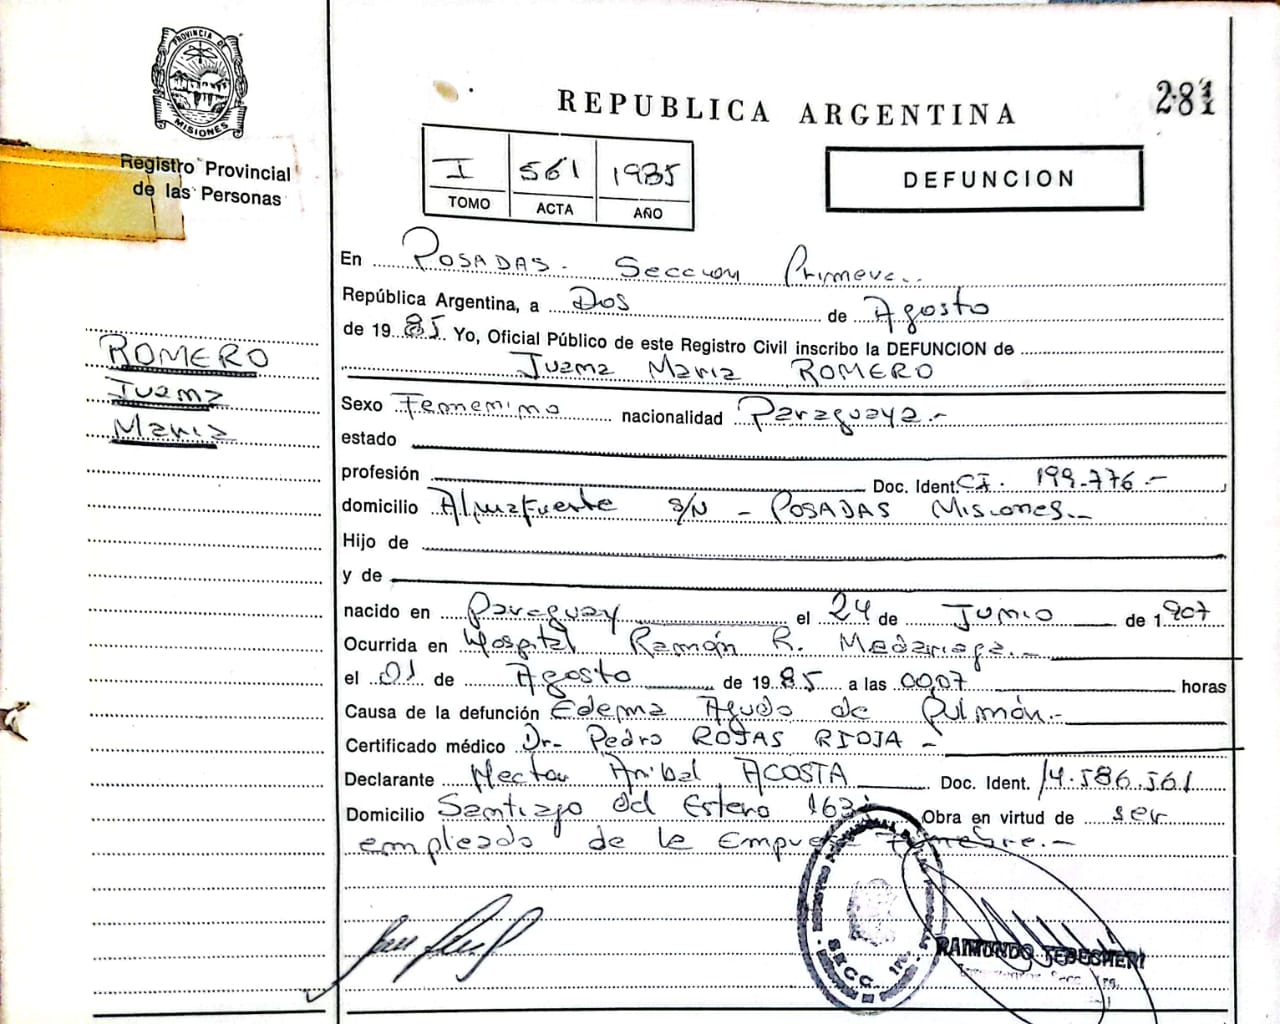 PROVINCIA DE
MISIONES
Registro Provincial
de las Personas
REPUBLICA ARGENTINA
281
I 561 1985
TOMO ACTA AÑO
DEFUNCION
ROMERO
Juana
Maria
En POSADAS. Seccion Primera..
República Argentina, a Dos de Agosto
de 1985 Yo, Oficial Público de este Registro Civil inscribo la DEFUNCION de
Juana Maria ROMERO
Sexo Femenino nacionalidad Paraguaya.-
estado
profesión Doc. Ident. CI. 199.776.-
domicilio Almafuerte S/N - POSADAS Misiones.-
Hijo de
y de
nacido en Paraguay el 24 de Junio de 1907
Ocurrida en Hospital Ramón R. Madariaga.-
el 01 de Agosto de 1985 a las 00,07 horas
Causa de la defunción Edema Agudo de Pulmón.-
Certificado médico Dr- Pedro ROJAS RIOJA -
Declarante Hector Anibal ACOSTA Doc. Ident. 14.586.561
Domicilio Santiago del Estero Obra en virtud de ser
empleado de la Empresa Funebre.-
SECC. 1ra.
RAIMUNDO